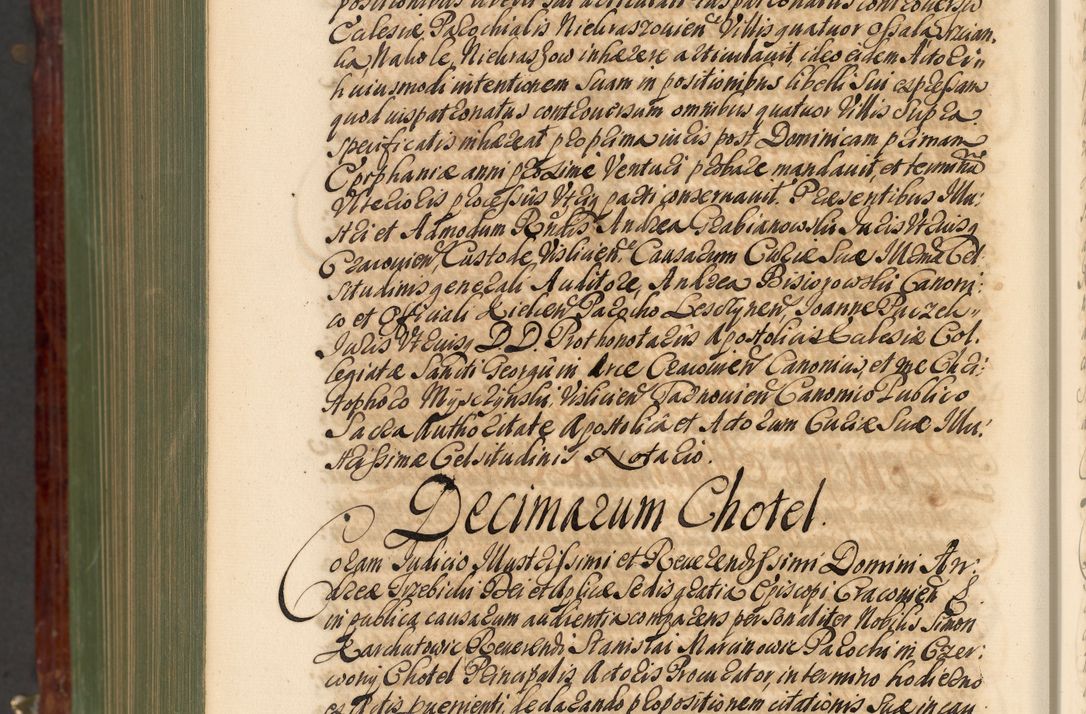 Ecclesiæ Parochialis Niekraszovien Villis quatuor Ossala Trzcian,
ka Nakole, Niekraszow inhærere articulavit, ideo eidem Actori
huiusmodi intentionem Suam in positionibus libelli sui expressam
quod iuspatronatus controversum omnibus quatuor Villis Supra
specificatis inhæreat pro prima iuris post Dominicam primam
Epiphaniæ anni proxime Venturi probare mandavit, et terminũ
Ulterioris processus Utriq parti conservavit. Præsentibus Illu:
stri et Admodum Rñdis Andrea Grabianowski Juris Utriusq
Cracovien, Custode Vislicien, Causarum Curiæ Suæ Illmæ Cel
situdinis generali Auditore, Andrea Bisiorowski Canoni:
co et Officiali Kielcen Parocho Lesczynen, Joanne Paczek
Juris Utriusq D D. Prothonotariis Apostolicis Ecclesiæ Col,
legiatæ Sancti Georgii in Arce Cracovien Canonicis, et me Chri:
stophoro Mysczynski, Vislicien Tarnovien Canonico Publico
Sacra Authoritate Apostolica et Actorum Curiæ Suæ Illu:
strissimæ Celsitudinis Notario.
Decimarum Chotel.
Coram Judicio Illustrissimi et Reverendissimi Domini An:
dreæ Trzebicki Dei et Aplicæ Sedis gratia Episcopi Cracovien
in publica causarum audientia comparens personaliter Nobilis Simon
Karchutowic Reverendi Stanislai Marianowic Parochi in Czer:
wony Chotel Principalis Actoris Procurator, in termino hodierno
ex Actis provenienti, declarando propositionem citationis Suæ in cau